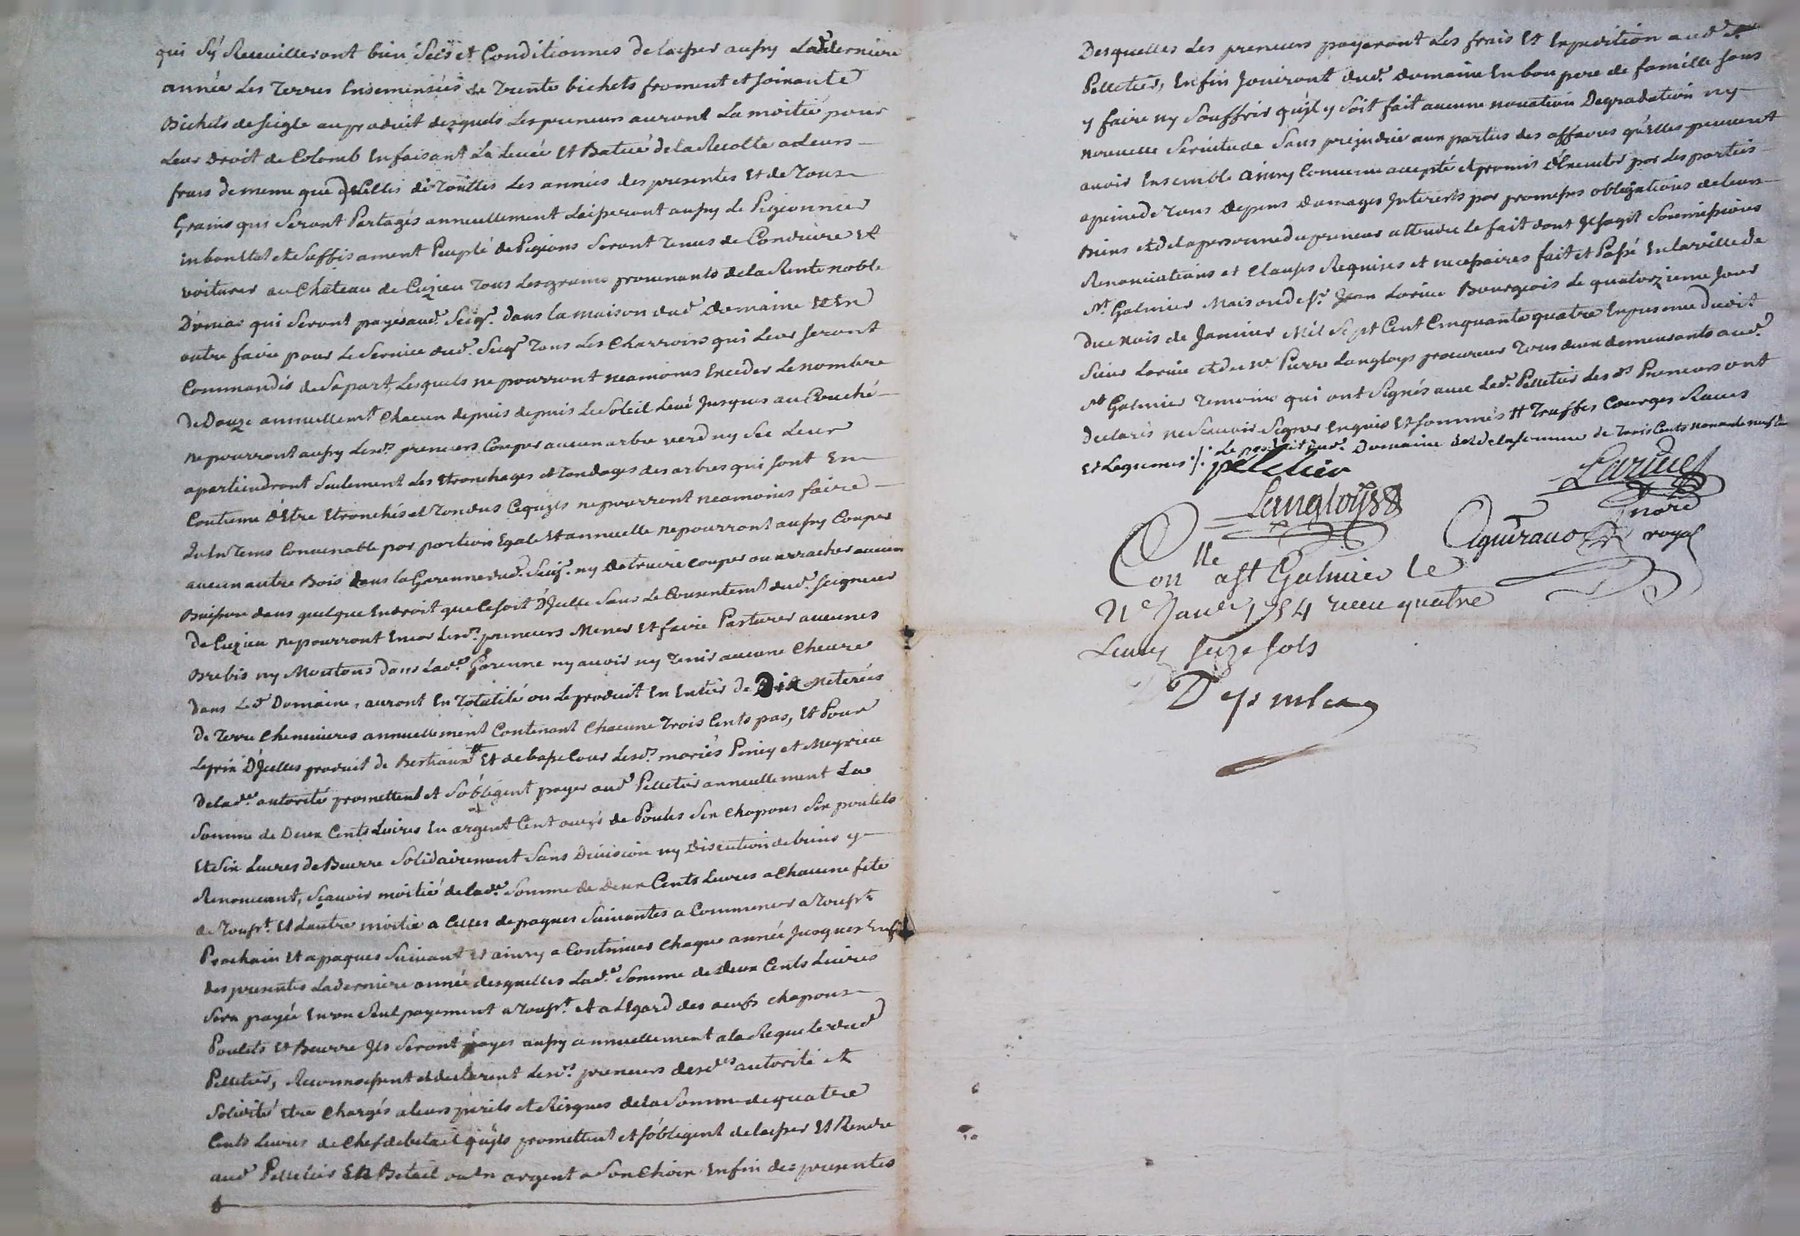 qui S'y Receuilleront bien Secs et Conditionnés delaisser aussy Lad.e derniere
année Les Terres Ensemensées de Trente bichets froment et soixante
Bichets de seigle au produit desquels Les preneurs auront La moitié pour
Leur Droit de Colomb En faisant La Levée Et Batue de la Recolte a Leurs
frais de meme que Celles de Touttes Les années des presentes Et de Tous
Grains qui Seront Partagés annuellement Laisseront aussy Le Pigeonnier
en bon Etat et Suffisament Peuplé de Pigeons Seront Tenus de Conduire Et
voiturer au Château de Cuzieu Tous Les grains provenants de la Rente noble
qui Seront payés aud. Seigr. dans la maison dud. Domaine Et En
outre faire pour Le Service dud. Seigr. Tous Les Charrois qui Leur Seront
Commandés de Sa part Lesquels ne pourront neamoins Exceder Le nombre
De Douze annuellemt. Chacun depuis depuis Le Soleil Levé Jusques au Couché
ne pourront aussy Lesd. preneurs Couper aucun arbre verd ny Sec Leur
apartiendront Seulement Les Etronchages et Tondages des arbres qui sont En
Coutume D'Etre Etronchés et Tondus Ce qu'ils ne pourront neamoins faire
qu'En Tems Convenable par portion Egale Et annuelle ne pourront aussy Couper
aucun autre Bois dans la Garenne dud. Seigr. ny detruire couper ou arracher aucun
Buisson dans quelque Endroit que Ce soit D'Icelle Sans Le Consentemt. dud. Seigneur
de Cuzieu ne pourront Encor Lesd. preneurs Mener Et faire Pasturer aucunes
Brebis ny Moutons dans Lad.e Garenne ny avoir ny Tenir aucune Chevre
dans Led. Domaine, auront En Totalité ou Le produit En Entier de Dix meterées
de Terre Chenevieres annuellement Contenant Chacune Trois Cents pas, Et Pour
Le prix D'Icelles produit de Bestiaux # Et de basse Cour Lesd. mariés Poncy et Meyrieu
de lad.e autorité promettent et S'obligent payer aud. Pelletier annuellement La
Somme de Deux Cents Livres En argent Cent oeufs de Poules Six chapons Six poulets
Et Six Livres de Beurre Solidairement Sans Division ny Discution de biens y
Renonceant, Sçavoir moitié de lad.e Somme de deux Cents Livres a Chacune fête
de Toust. Et L'autre moitié a Celles de paques Suivantes a Commencer a Toust.
Prochain Et a paques Suivant Et ainsy a Continuer Chaque année Jusques Enfin
des presentes La derniere année desquelles Lad.e Somme de deux Cents Livres
Sera payée En un Seul payement a Toust. et a L'Egard des oeufs chapons
Poulets Et Beurre Ils Seront payes aussy annuellement a la Requete dud.
Pelletier, Reconnoissent et declarent Lesd. preneurs desd.es autorité et
Solidité Etre Chargés a leurs perils et Risques de la Somme de quatre
Cents Livres de Chef de betail qu'ils promettent et s'obligent de laisser Et Rendre
aud. Pelletier En Betail ou En argent a Son Choix Enfin des presentes
Desquelles Les preneurs payeront Les frais Et Expedition aud.
Pelletier, Enfin Jouiront dud. domaine En bon pere de famille Sans
y faire ny Souffrir qu'il y Soit fait aucune novation Degradation ny
nouvelle Servitude Sans prejudice aux parties des affaires qu'Elles peuvent
avoir Ensemble ainsy Convenu accepté et promis D'Executer par Les parties
a peine de Tous Depens Domages Interets par promesses obligations de leurs
Biens et de la personne du preneur attendu Le fait dont Il s'agit Soumissions
Renonciations et Clauses Requises et necessaires fait et Passé En la ville de
St. Galmier Maison de Sr. Jean Lorine Bourgeois Le quatorzieme Jour
Du mois de Janvier Mil Sept Cent Cinquante quatre En presence dudit
Sieur Lorine et de Me Pierre Langloys procureur Tous deux demeurants aud.
St Galmier Temoins qui ont Signés avec Led. Pelletier Les ds. Preneurs ont
declarés ne Sçavoir Signer Enquis Et Sommés # Truffes Courges Raves
Et Legumes Le produit dud. Domaine Est de la Somme de Trois Cents nonante neuf
pelletier
Lorine
Langloys
Aguiraud nore
royal
Conlle a St Galmier le
Janer 1754 receu quatre
Livres Seize Sols